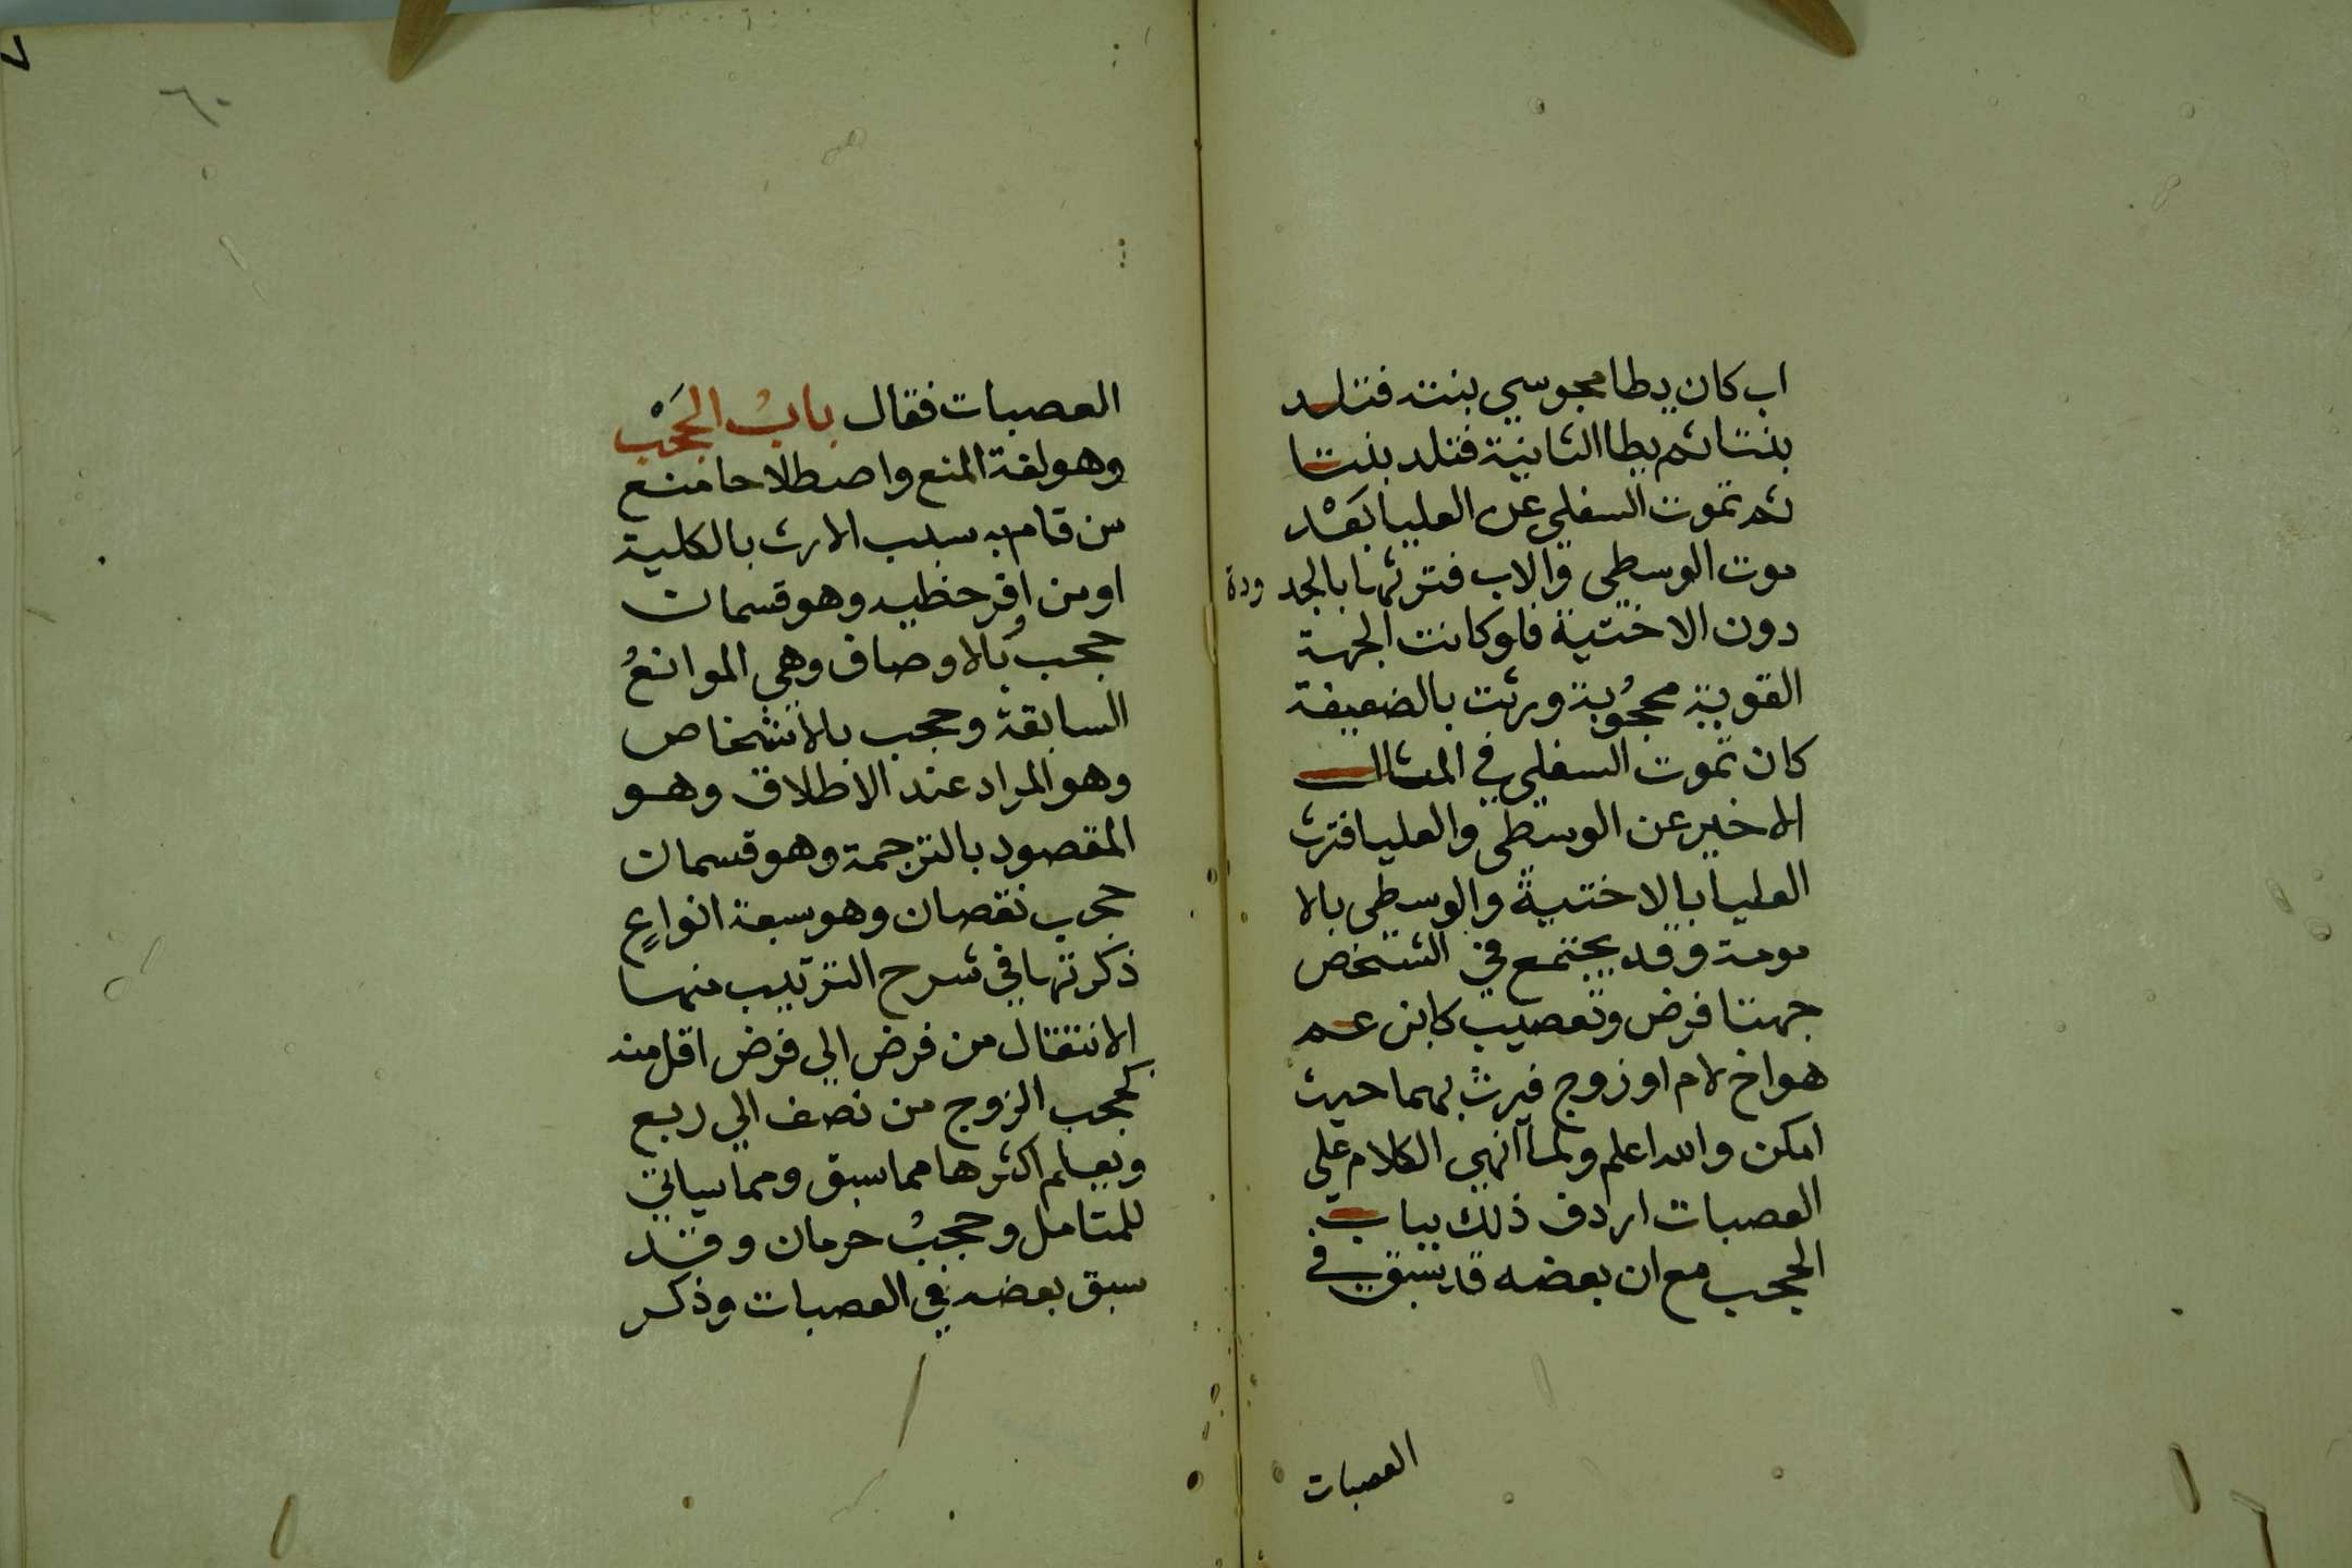 اب كان يطا مجوسي بنته فتلد
بنتا ثم يطا الثانية فتلد بنتا
ثم تموت السفلي عن العليا بَعْد
موت الوسطي والاب فترثها بالجدودة
دون الاختية فلو كانت الجهة
القوية محجُوبة ورثت بالضعيفة
كان تموت السفلي في المثال
الاخير عن الوسطي والعليا فترث
العليا بالاختية والوسطي بالا
مومة وقد يجتمع في الشخص
جهتا فرض وتعصيب كابن عم
هو اخ لام او زوج فيرث بهما حيث
امكن والله اعلم ولما انهي الكلام علي
العصبات اردف ذلك بباب
الحجب مع ان بعضه قد سبق في
العصبات
٦٠
العصبات فقال بابُ الحَجْب
وهو لغة المنع واصطلاحا منع
من قام به سبب الارث بالكلية
او من اوفر حظيه وهو قسمان
حجب بالاوصاف وهي الموانعُ
السابقة وحجب بالاشخاص
وهو المراد عند الاطلاق وهو
المقصود بالترجمة وهو قسمان
حجب نقصان وهو سبعة انواعٍ
ذكرتها في شرح الترتيب منها
الانتقال من فرض الي فرض اقل منه
كحجب الزوج من نصف الي ربع
ويعلم اكثرها مما سبق ومما سياتي
للمتامل وحجبُ حرمان وقد
سبق بعضه في العصبات وذكر